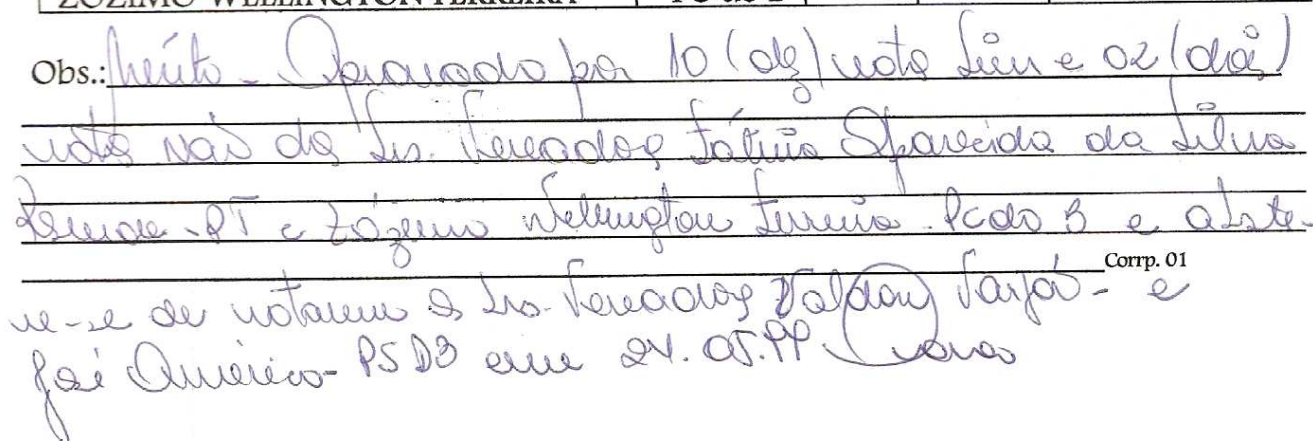 ZÓZIMO WELLINGTON FERREIRA PC do B
Obs.: Mérito - Aprovado por 10 (dez) votos Sim e 02 (dois)
votos Não dos Srs. Vereadores Fátima Aparecida da Silva
Resende - PT e Zózimo Wellington Ferreira - PC do B e abste-
Corrp. 01
ve-se de votarem os Srs. Vereadores Valdon Varjão - e
José Américo - PSDB em 24.05.99